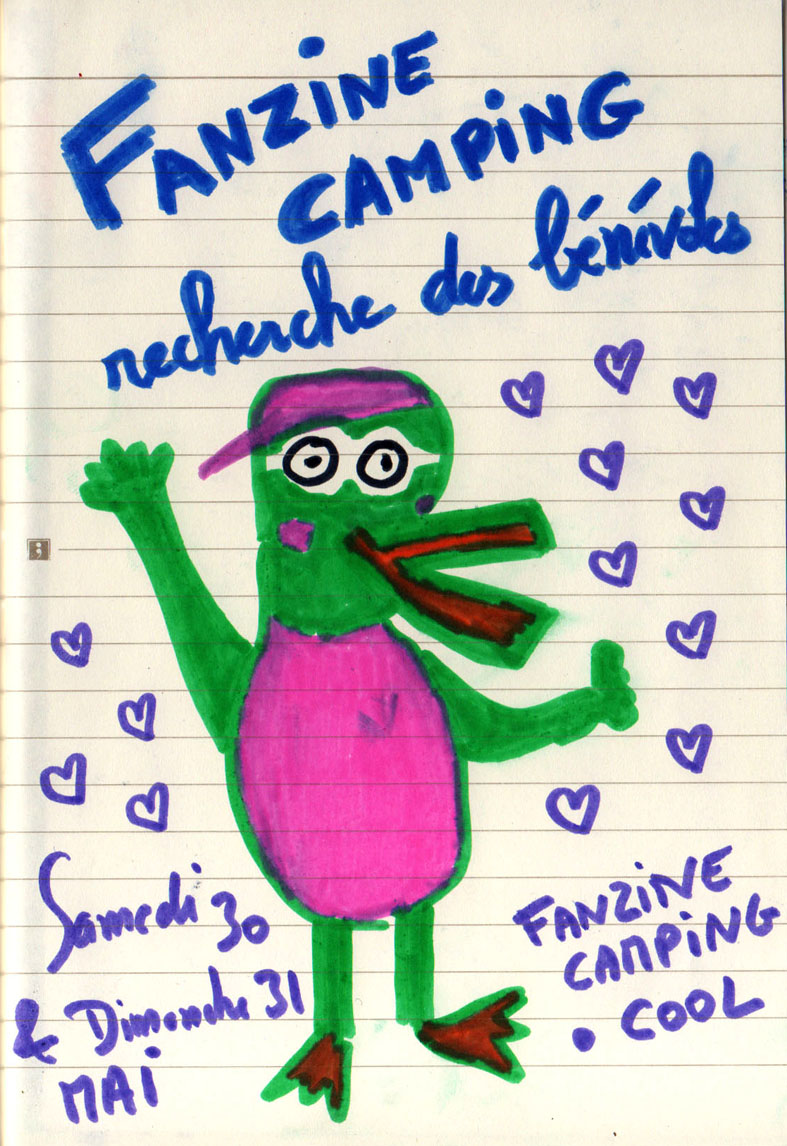 FANZiNE
CAMPiNG
recherche des bénévoles
Samedi 30
& Dimanche 31
MAi
FANZiNE
CAMPiNG
. COOL